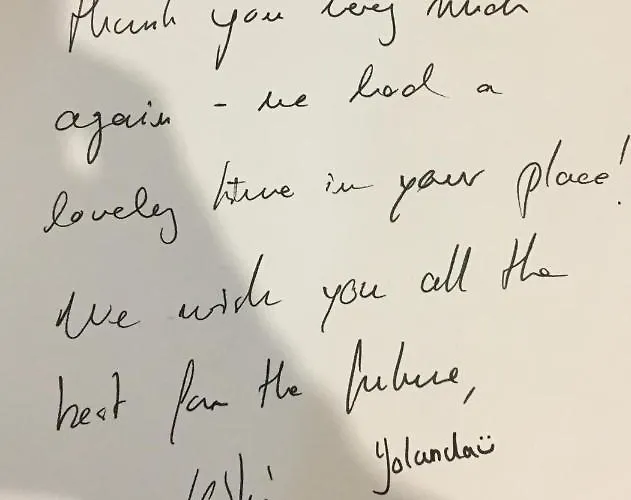 thank you very much
again - we had a
lovely time in your place!
We wish you all the
best for the future,
Yolanda ü